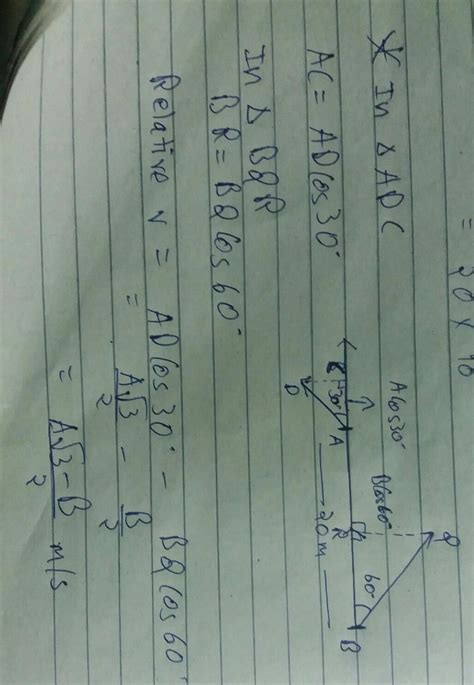 = 20 x 10
* In Δ ADC
AC = ADCos30°
In Δ BQR
BR = BQCos60°
Relative v = ADCos30° - BQCos60°
= A√3/2 - B/2
= A√3-B/2 m/s
ACos30°
BCos60°
Q
60°
B
R
20m
A
30°
D